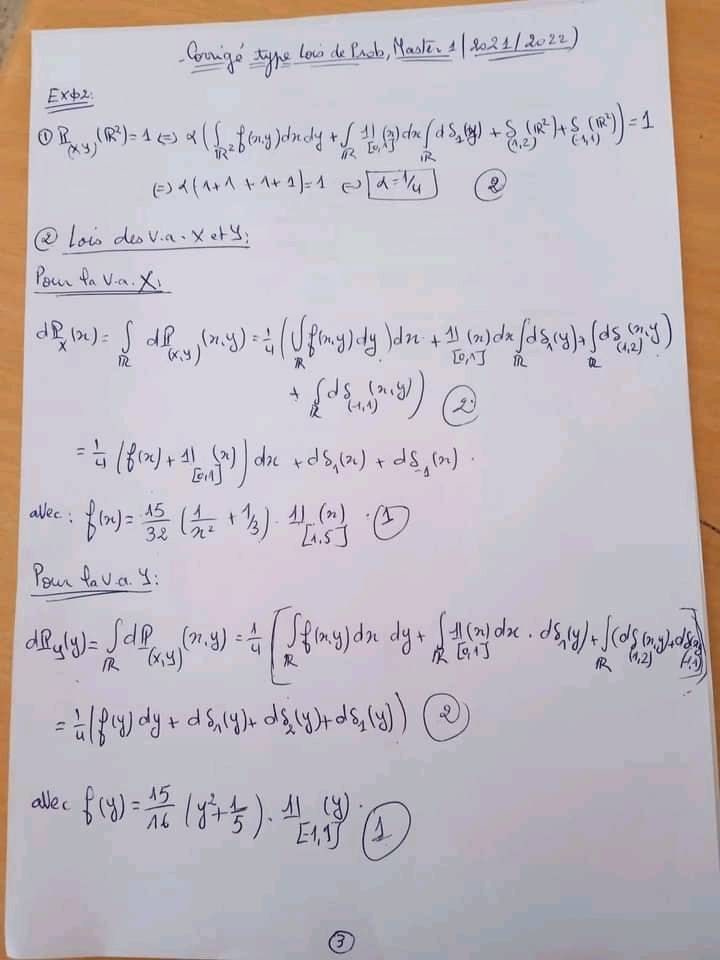 Corrigé type Lois de Prob, Master 1 (2021/2022)
EX02:
① ℙ_(X,Y)(ℝ²)=1 ⇔ α(∫_ℝ² f(x,y)dxdy + ∫_ℝ 1_[0,1](x)dx ∫_ℝ dδ₁(y) + δ_(1,2)(ℝ²) + δ_(-1,1)(ℝ²)) = 1
⇔ α(1+1+1+1)=1 ⇔ α=1/4 ②
② Lois des v.a. X et Y:
Pour la v.a. X:
dℙ_X(x) = ∫_ℝ dℙ_(X,Y)(x,y) = 1/4 (∫_ℝ f(x,y)dy)dx + 1_[0,1](x)dx ∫_ℝ dδ₁(y) + ∫_ℝ dδ_(1,2)(x,y)
+ ∫_ℝ dδ_(-1,1)(x,y)) ②
= 1/4 (f(x) + 1_[0,1](x))dx + dδ₁(x) + dδ₋₁(x).
avec: f(x) = 15/32 (1/x² + 1/3). 1_[1,5](x). ①
Pour la v.a. Y:
dℙ_Y(y) = ∫_ℝ dℙ_(X,Y)(x,y) = 1/4 [∫_ℝ f(x,y)dx dy + ∫_ℝ 1_[0,1](x)dx . dδ₁(y) + ∫_ℝ (dδ_(1,2)(x,y) + dδ_(-1,1)(x,y))]
= 1/4 (f(y)dy + dδ₁(y) + dδ₂(y) + dδ₁(y)) ②
avec f(y) = 15/16 (y² + 1/5). 1_[-1,1](y). ①
③